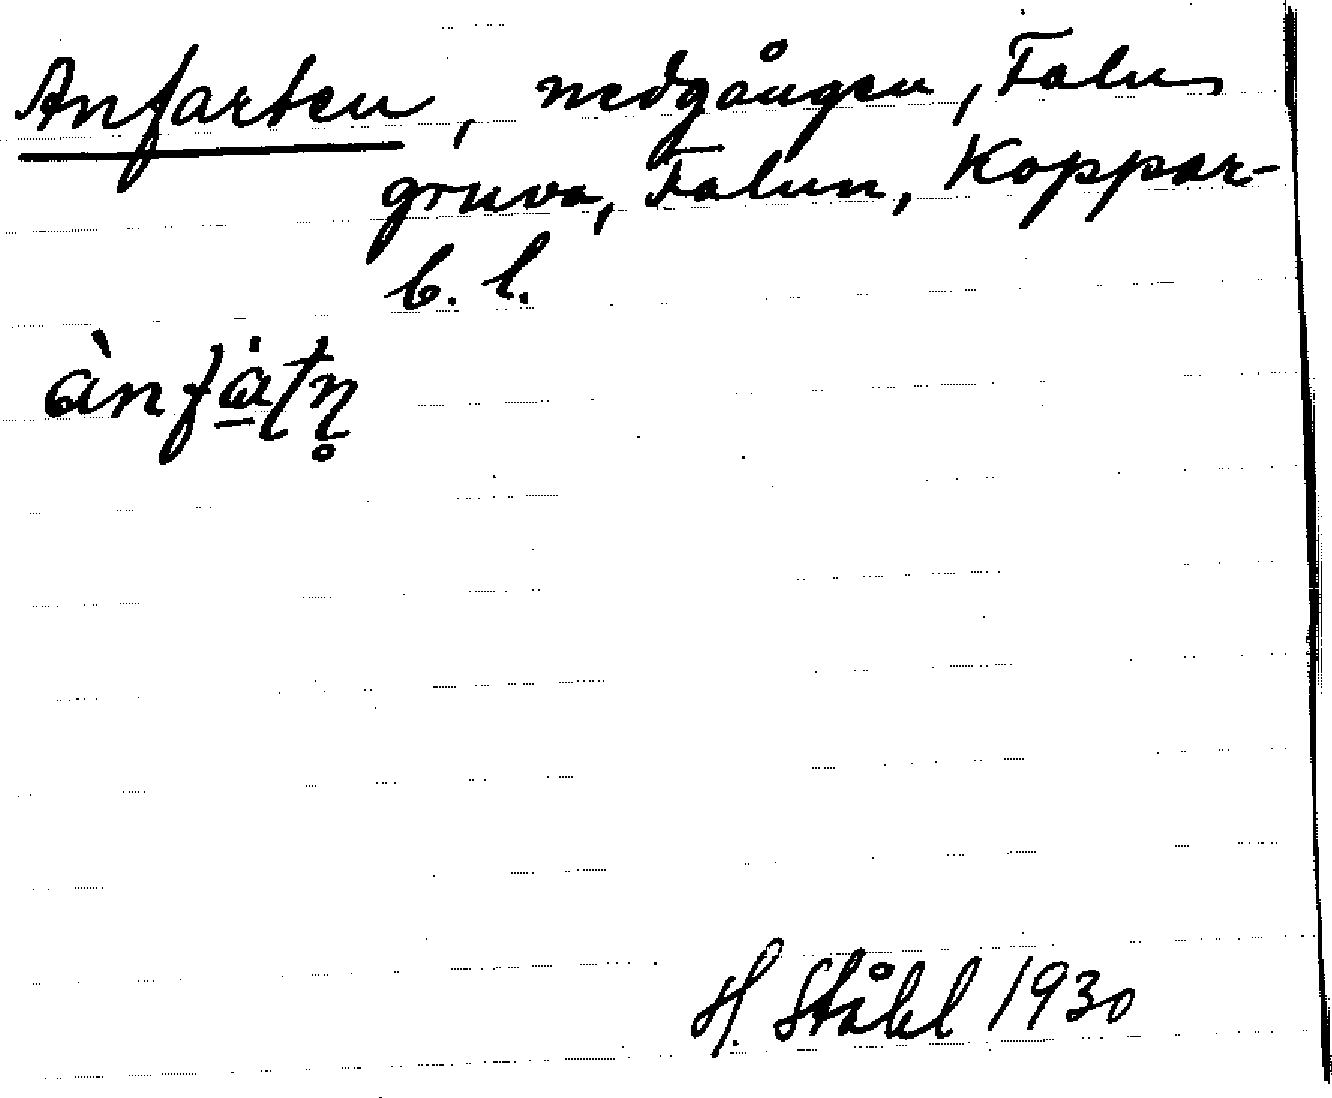 Anfarten, nedgången, Falu
gruva, Falun, Koppar-
b. l.
ànfà̱ʈn̥
H. Ståhl 1930